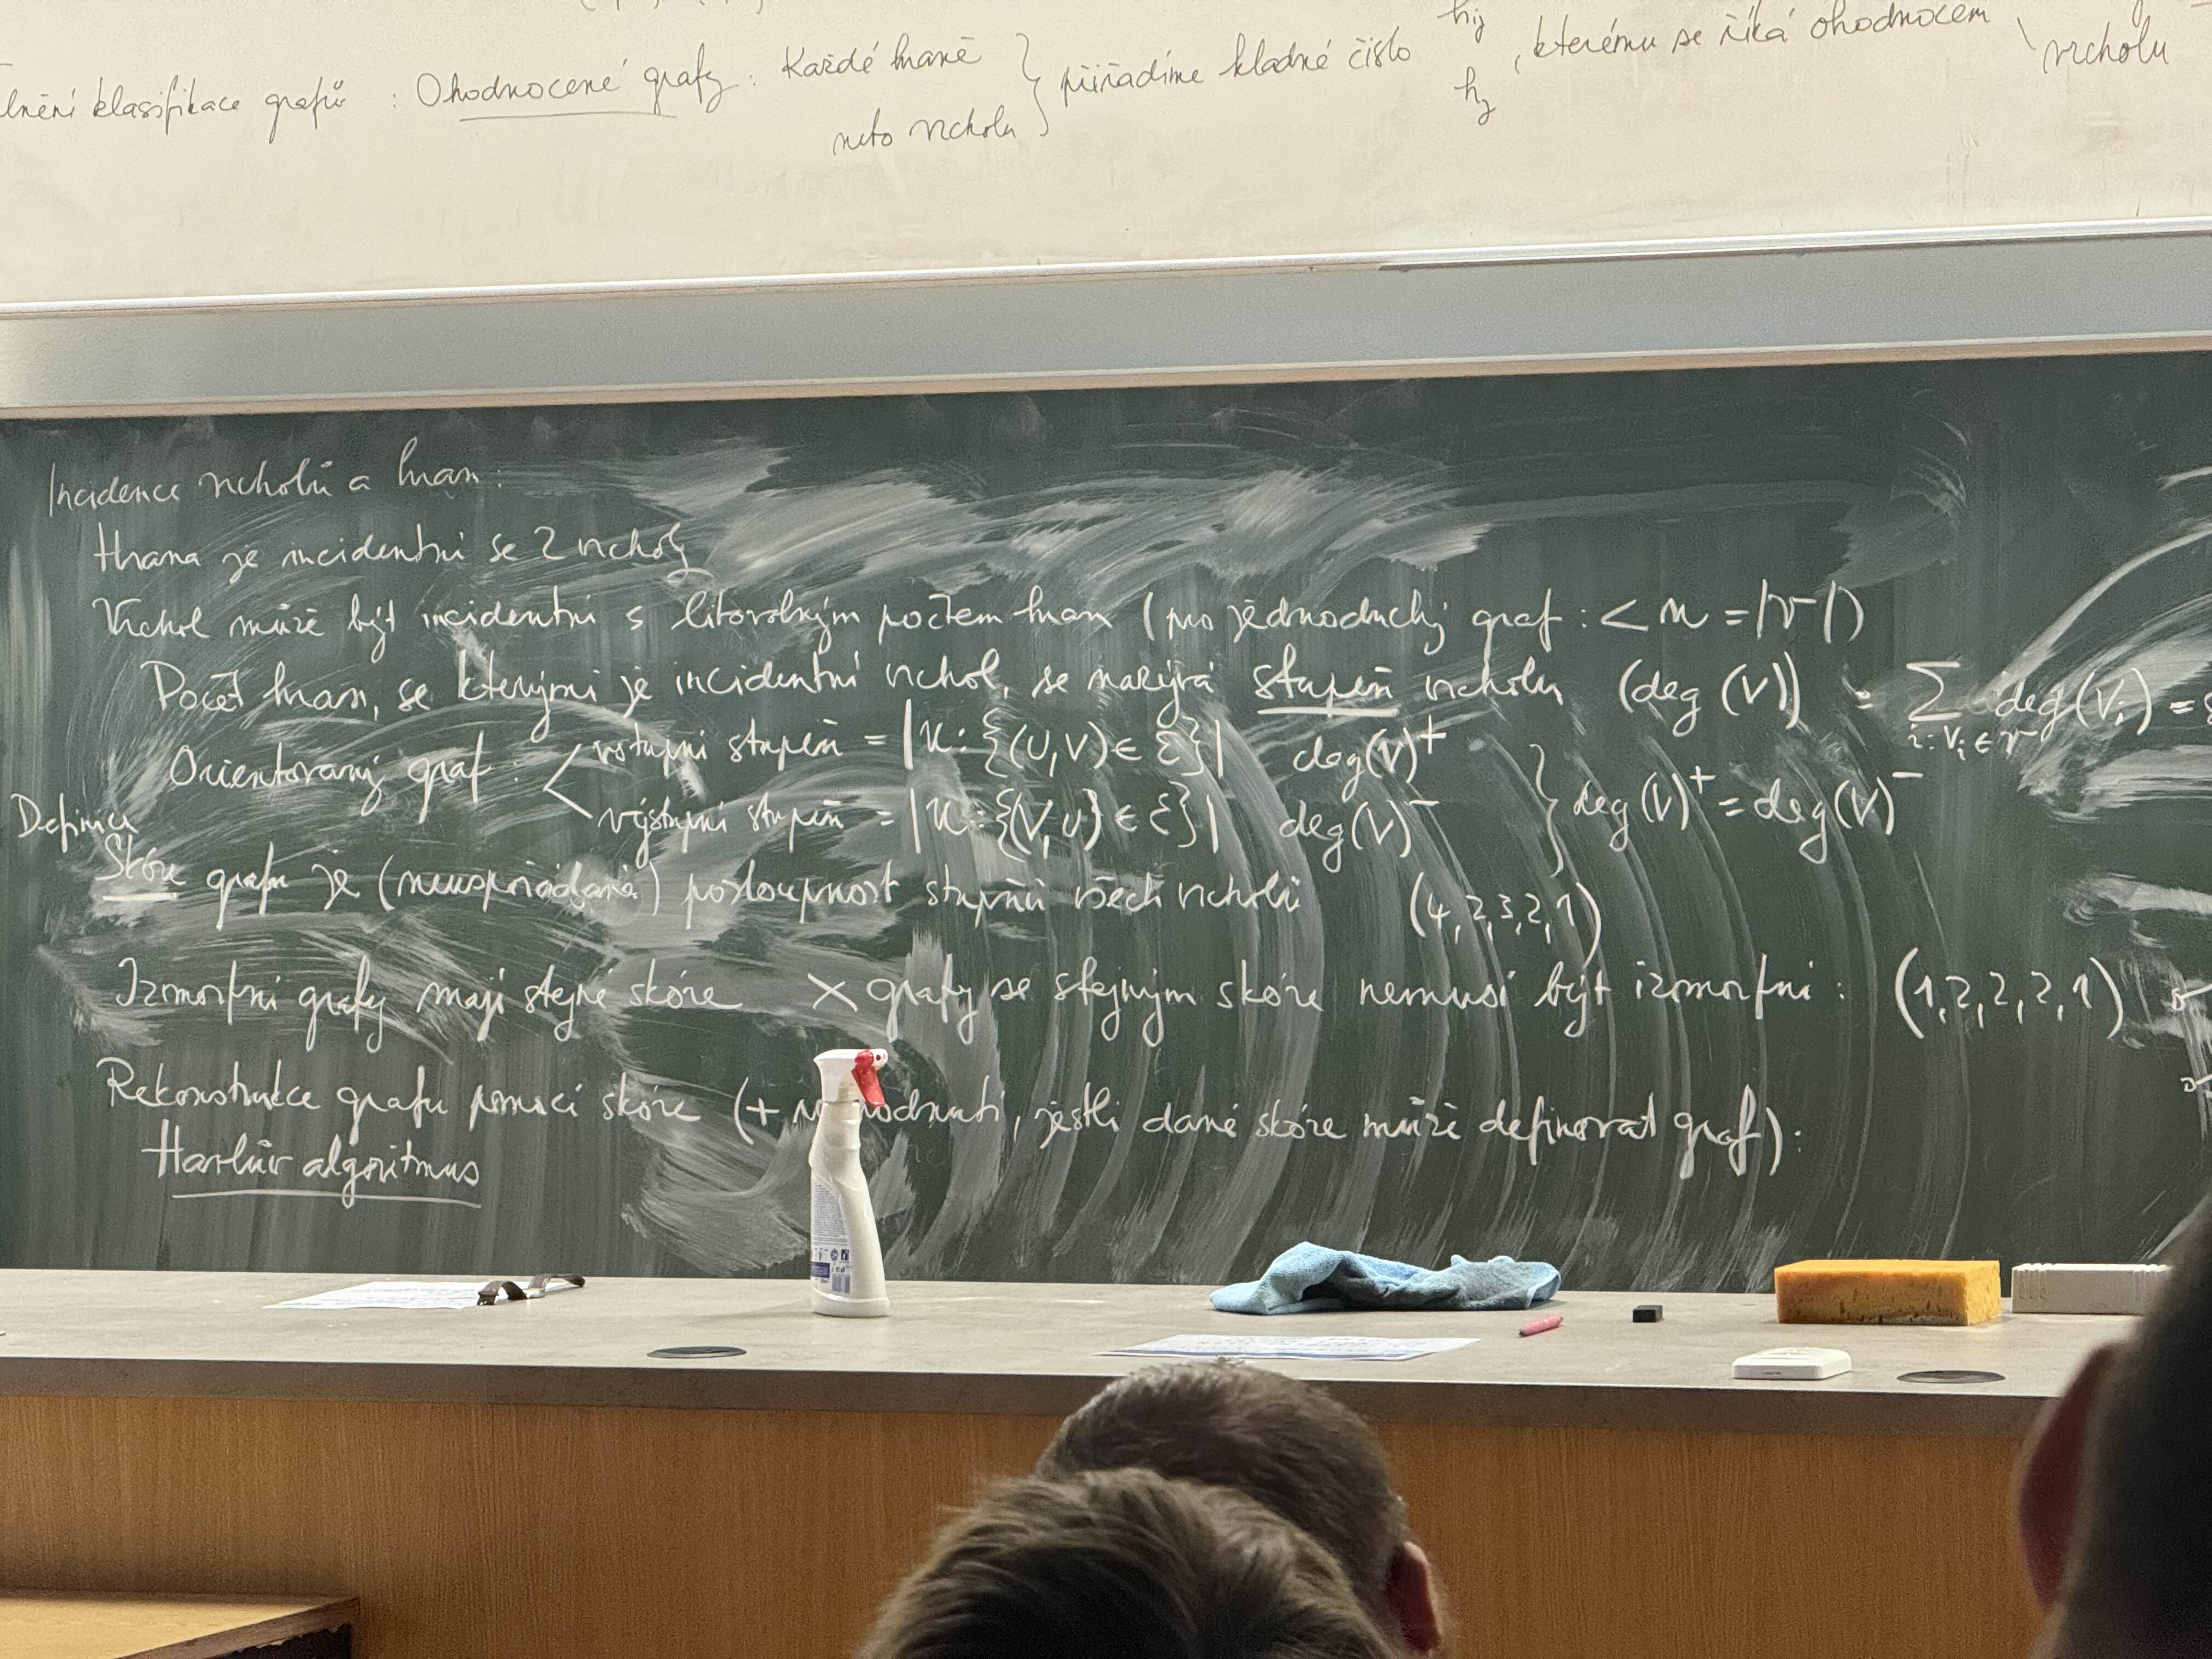 lnění klasifikace grafů : Ohodnocené grafy : Každé hraně } přiřadíme kladné číslo hij , kterému se říká ohodnocení
nebo vrcholu hj vrcholu
Incidence vrcholů a hran :
Hrana je incidentní se 2 vrcholy
Vrchol může být incidentní s libovolným počtem hran (pro jednoduchý graf : < n = |V|)
Počet hran, se kterými je incidentní vrchol, se nazývá stupeň vrcholu (deg (V)) ∑ deg(Vi) =
i: Vi ∈ V
Orientovaný graf : vstupní stupeň = |U: {(U,V) ∈ E}| deg(V)+
výstupní stupeň = |U: {(V,U) ∈ E}| deg(V)- } deg(V)+ = deg(V)-
Definice
Skóre grafu je (neuspořádaná) posloupnost stupňů všech vrcholů (4,2,3,2,1)
Izmorfní grafy mají stejné skóre × grafy se stejným skóre nemusí být izomorfní : (1,2,2,2,1)
Rekonstrukce grafu pomocí skóre (+ , jestli dané skóre může definovat graf) :
algoritmus